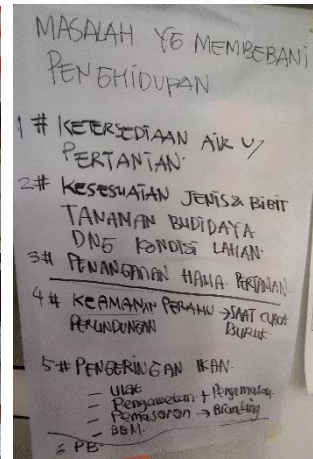 MASALAH YG MEMBEBANI
PENGHIDUPAN
1 # KETERSEDIAAN AIR U/
PERTANIAN.
2# KESESUAIAN JENIS & BIBIT
TANAMAN BUDIDAYA
DNG KONDISI LAHAN.
3# PENANGANAN HAMA PERTANIAN.
4 # KEAMANAN PERAHU → SAAT CUACA
PERLINDUNGAN BURUK
5 # PENGERINGAN IKAN.
- Ulat
- Pengawetan + Pengemasan
- Pemasaran → Branding
- BBM.
6 PB